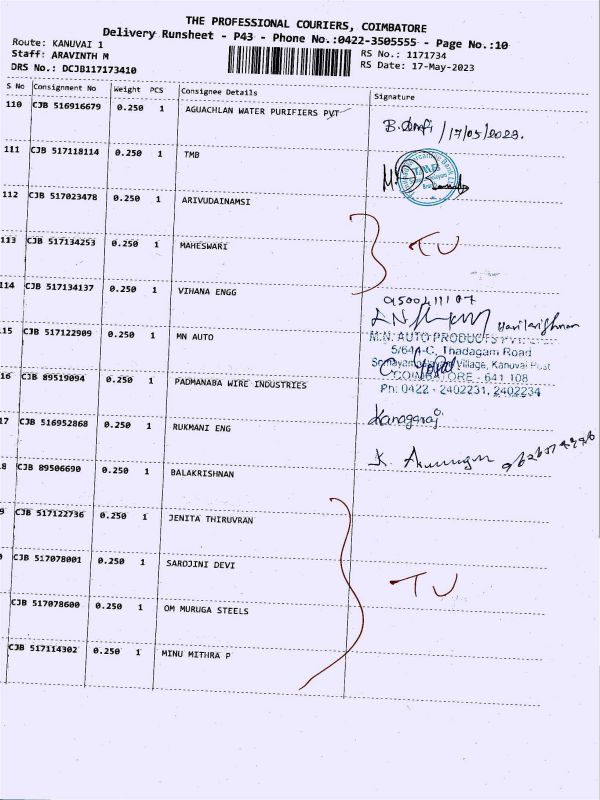 THE PROFESSIONAL COURIERS, COIMBATORE
Delivery Runsheet - P43 - Phone No.:0422-3505555 - Page No.:10
Route: KANUVAI 1 RS No.: 1171734
Staff: ARAVINTH M RS Date: 17-May-2023
DRS No.: DCJB117173410
S No Consignment No Weight PCS Consignee Details Signature
110 CJB 516916679 0.250 1 AGUACHLAN WATER PURIFIERS PVT
17/05/2023.
111 CJB 517118114 0.250 1 TMB
TMB
112 CJB 517023478 0.250 1 ARIVUDAINAMSI
TU
113 CJB 517134253 0.250 1 MAHESWARI
114 CJB 517134137 0.250 1 VIHANA ENGG
Harikrishnan
15 CJB 517122909 1 MN AUTO 0.250
M.N. AUTO PRODUCTS
5/64A-C, Thadagam Road
Village, Kanuvai Post
COIMBATORE - 641 108
Ph: 0422 - 2402231, 2402234
16 CJB 89519094 0.250 1 PADMANABA WIRE INDUSTRIES
Kanagaraj
17 CJB 516952868 0.250 1 RUKMANI ENG
K.
8 CJB 89506690 0.250 1 BALAKRISHNAN
9 CJB 517122736 0.250 1 JENITA THIRUVRAN
0 CJB 517078001 0.250 1 SAROJINI DEVI
TU
CJB 517078600 0.250 1 OM MURUGA STEELS
CJB 517114302 0.250 1 MINU MITHRA P